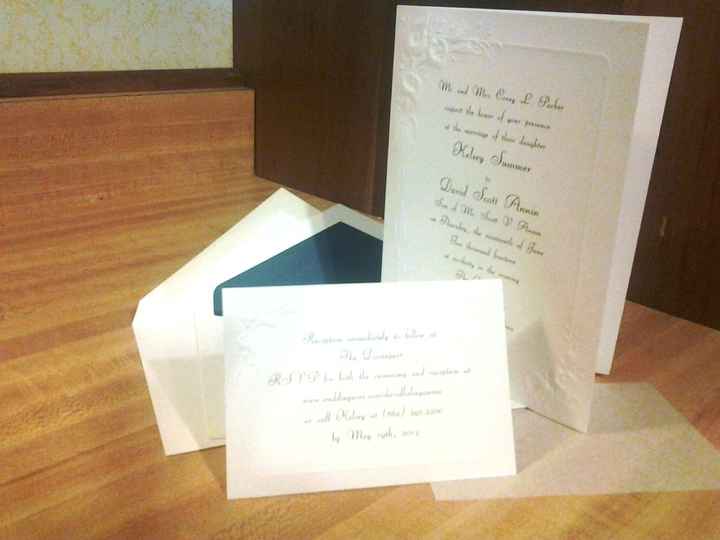 Mr. and Mrs. Corey L. Parker
request the honor of your presence
at the marriage of their daughter
Kelsey Summer
to
David Scott Annin
Son of Mr. Scott V. Annin
on Thursday, the nineteenth of June
Two thousand
at in the evening
The
Reception immediately to follow at
The
RSVP for both the ceremony and reception at
or call Kelsey at
by May 19th,